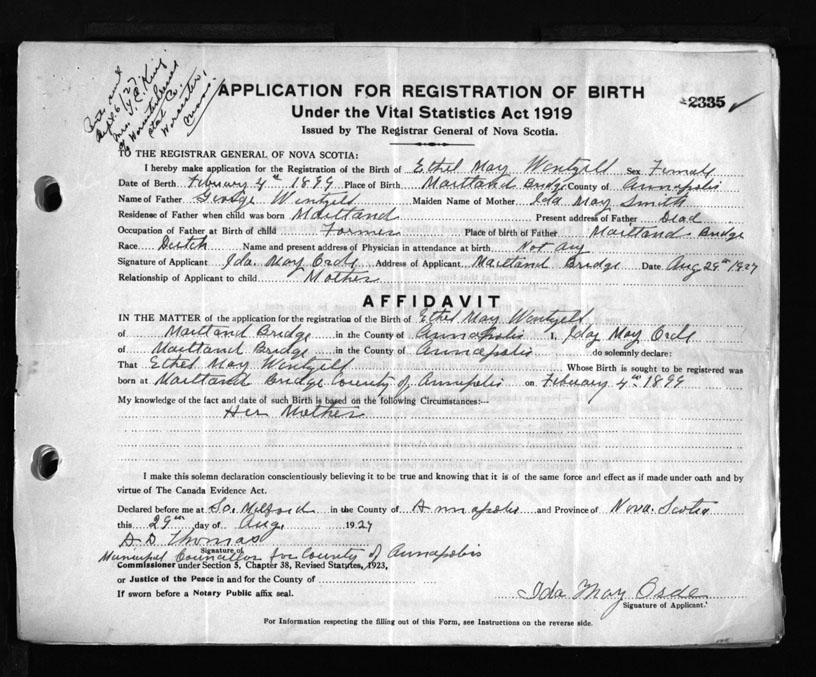 Sept. 6/27.
Mrs.
Worcester,
APPLICATION FOR REGISTRATION OF BIRTH
2335
Under the Vital Statistics Act 1919
Issued by The Registrar General of Nova Scotia.
TO THE REGISTRAR GENERAL OF NOVA SCOTIA:
I hereby make application for the Registration of the Birth of Ethel May Wentzell Sex Female
Date of Birth Febuary 4th 1899 Place of Birth Maitland Bridge County of Annapolis
Name of Father George Wentzell Maiden Name of Mother Ida May Smith
Residence of Father when child was born Maitland Present address of Father Dead
Occupation of Father at Birth of child Farmer Place of birth of Father Maitland Bridge
Race Dutch Name and present address of Physician in attendance at birth Not any
Signature of Applicant Ida May Orde Address of Applicant Maitland Bridge Date Aug 29th 1927
Relationship of Applicant to child Mother
AFFIDAVIT
IN THE MATTER of the application for the registration of the Birth of Ethel May Wentzell
of Maitland Bridge in the County of Annapolis I, Iday May Orde
of Maitland Bridge in the County of Annapolis do solemnly declare:
That Ethel May Wentzell Whose Birth is sought to be registered was
born at Maitland Bridge County of Annapolis on Febuary 4th 1899
My knowledge of the fact and date of such Birth is based on the following Circumstances:—
Her Mother
I make this solemn declaration conscientiously believing it to be true and knowing that it is of the same force and effect as if made under oath and by
virtue of The Canada Evidence Act.
Declared before me at So. Milford in the County of Annapolis and Province of Nova. Scotia
this 29th day of Aug. 1927
A D Thomas
Signature of
Municipal Councillor for County of Annapolis
Commissioner under Section 5, Chapter 38, Revised Statutes, 1923,
or Justice of the Peace in and for the County of
If sworn before a Notary Public affix seal.
Ida May Orde
Signature of Applicant.
For Information respecting the filling out of this Form, see Instructions on the reverse side.